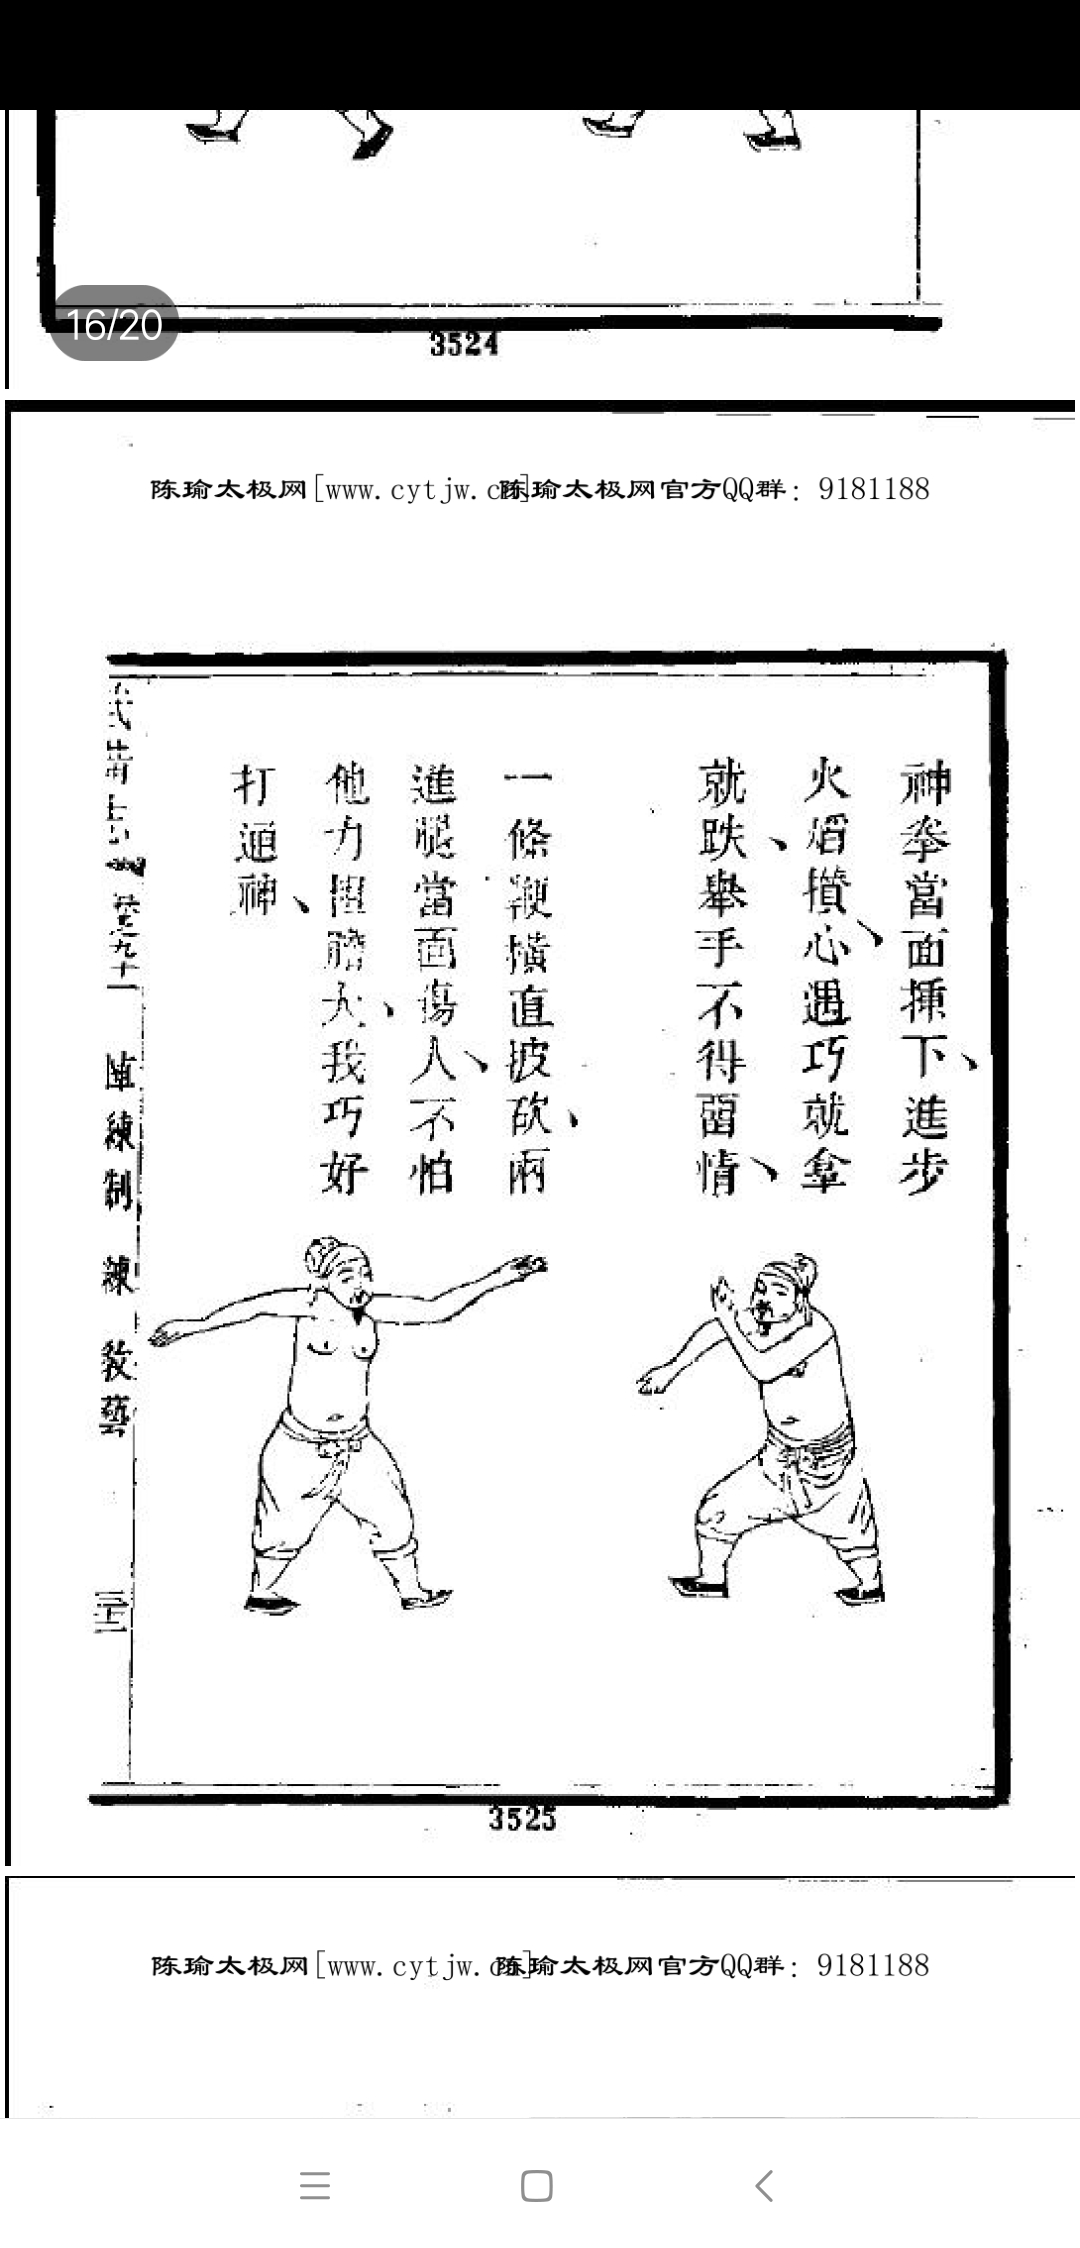 16/20
3524
陈瑜太极网[www.cytjw.cn]陈瑜太极网官方QQ群：9181188
神拳當面揷下、進步
火焰攢心、遇巧就拿
就跌、舉手不得留情、
一條鞭橫直披砍、兩
進腿當面傷人、不怕
他力粗膽大、我巧好
打通神、
武備志 卷九十一 陣練制 練 教藝
3525
陈瑜太极网[www.cytjw.cn]陈瑜太极网官方QQ群：9181188